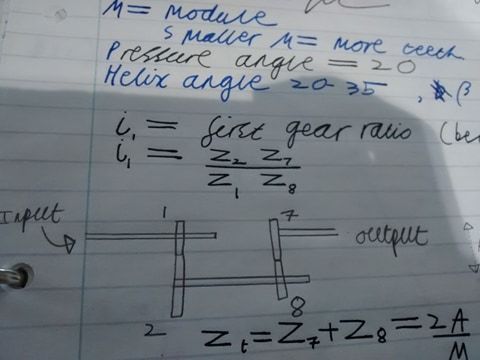 M = module
smaller M = more teeth
Pressure angle = 20
Helix angle 20-35, β
i₁ = first gear ratio
i₁ = Z₂ Z₇ / Z₁ Z₈
Input 1 7 output
2 8
Zₜ = Z₇ + Z₈ = 2A / M